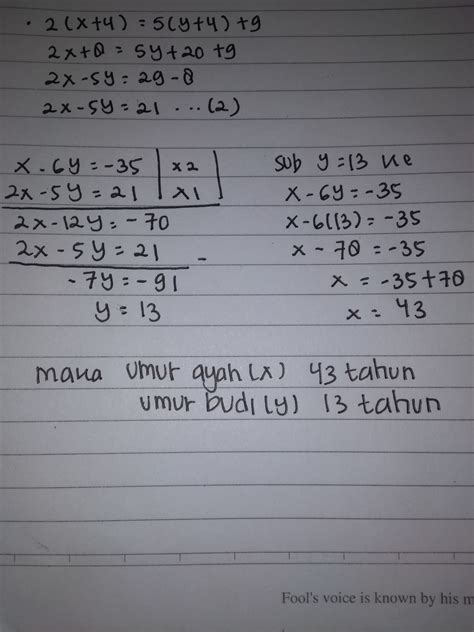 · 2(x+4) = 5(y+4)+9
2x+8 = 5y+20+9
2x-5y = 29-8
2x-5y = 21 ...(2)
x - 6y = -35 | x2
2x - 5y = 21 | x1
2x - 12y = -70
2x - 5y = 21 -
-7y = -91
y = 13
sub y = 13 ke
x - 6y = -35
x - 6(13) = -35
x - 78 = -35
x = -35+78
x = 43
maka umur ayah (x) 43 tahun
umur budi (y) 13 tahun
Fool's voice is known by his m